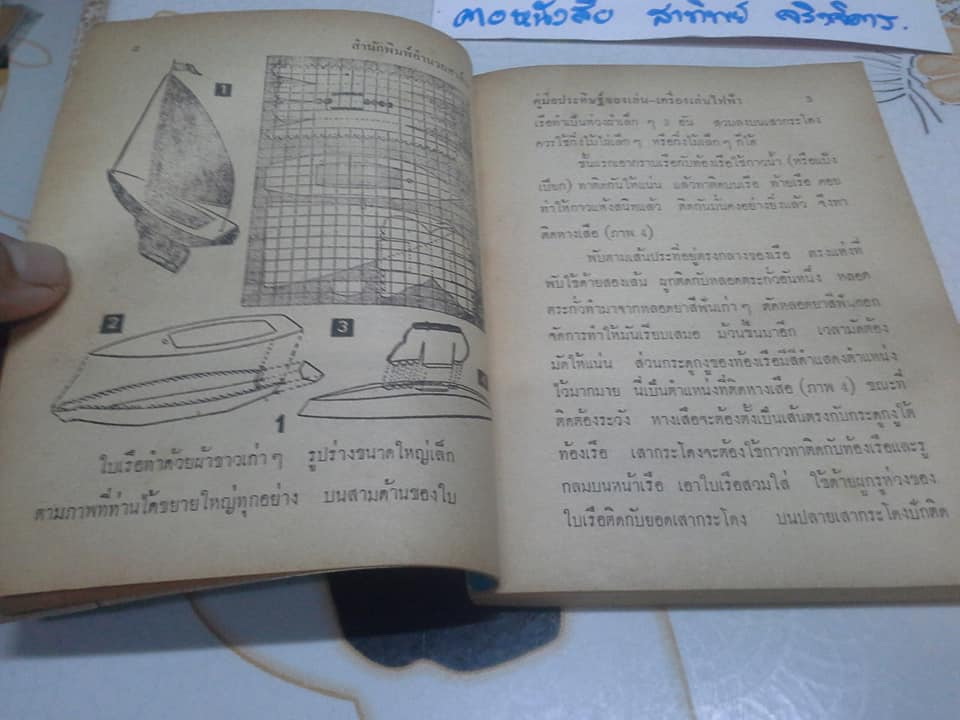 ตอหนังสือ สาทิทย์
๕ สำนักพิมพ์อำนวยสาส์น
1
2
3
1
ใบเรือทำด้วยผ้าขาวเก่า ๆ รูปร่างขนาดใหญ่เล็ก
ตามภาพที่ท่านได้ขยายใหญ่ทุกอย่าง บนสามด้านของใบ
คู่มือประดิษฐ์ของเล่น–เครื่องเล่นไฟฟ้า
เรือทำเป็นห่วงผ้าเล็ก ๆ 3 อัน สวมลงบนเสากระโดง
ควรใช้กิ่งไม้ไผ่เล็ก ๆ หรือกิ่งไม้เล็ก ๆ ก็ได้
ชั้นแรกเอากราบเรือกับท้องเรือใช้กาวน้ำ (หรือแป้ง
เปียก) ทาติดกันให้แน่น แล้วทาติดบนเรือ ท้ายเรือ ตอน
ทำให้กาวแห้งสนิทแล้ว ติดกันมั่นคงอย่างยิ่งแล้ว จึงทา
ติดหางเสือ (ภาพ 4)
พับตามเส้นประที่อยู่ตรงกลางของเรือ ตรงแห่งที่
พับใช้ด้ายสองเส้น ผูกติดกับหลอดตะกั่วอันหนึ่ง หลอด
ตะกั่วทำมาจากหลอดยาสีฟันเก่า ๆ ตัดหลอดยาสีฟันออก
จัดการทำให้มันเรียบเสมอ ม้วนขึ้นมาอีก เวลามัดต้อง
มัดให้แน่น ส่วนกระดูกงูของท้องเรือมีสีดำแสดงตำแหน่ง
ไว้มากมาย นี่เป็นตำแหน่งที่ติดหางเสือ (ภาพ 4) ขณะที่
ติดต้องระวัง หางเสือจะต้องตั้งเป็นเส้นตรงกับกระดูกงูใต้
ท้องเรือ เสากระโดงจะต้องใช้กาวทาติดกับท้องเรือและรู
กลมบนหน้าเรือ เอาใบเรือสวมใส่ ใช้ด้ายผูกรูห่วงของ
ใบเรือติดกับยอดเสากระโดง บนปลายเสากระโดงปักติด